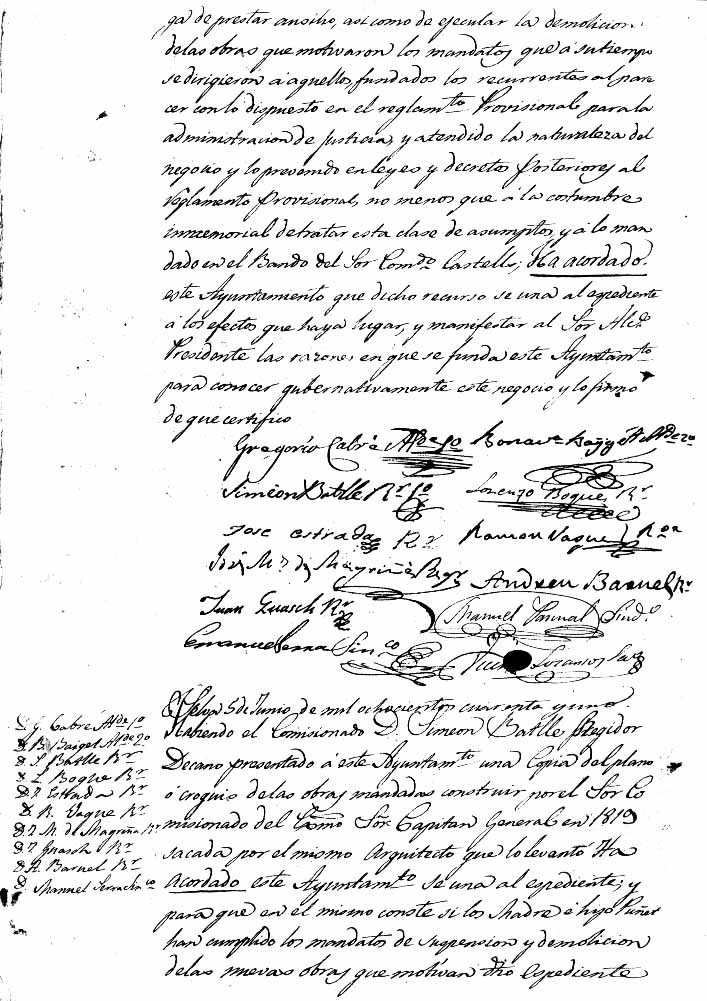 ga de prestar ausilio, asi como de ejecutar la demolicion
de las obras que motivaron los mandatos que a su tiempo
se dirigieron á aquellos, fundados los recurrentes al pare
cer con lo dispuesto en el reglamto Provisional para la
administracion de Justicia, y atendido la naturaleza del
negocio y lo prevenido en leyes y decretos Posteriores al
Reglamento Provisional, no menos que á la costumbre
inmemorial de tratar esta clase de asumptos, y á lo man
dado en el Bando del Sor Comdo Castells; Ha acordado
este Ayuntamiento que dicho recurso se una al espediente
á los efectos que haya lugar, y manifestar al Sor Alce
Presidente las razones en que se funda este Ayuntamto
para conocer gubernativamente este negocio y lo firmo
de que certifico
Gregorio Cabré Alde 1o Bonava Alde 2o
Simeon Batlle Rr 1o Lorenzo Boque Rr
Jose estrada Rr Ramon Vaque Ror
José Ma de Magriñá Regr Andreu Baruel Rr
Juan Guasch Rr Manuel Sindco
Emanuel Serra Sinco
Selva 5 de Junio de mil ochocientos cuarenta y uno.
Habiendo el Comisionado D. Simeon Batlle Regidor
Decano presentado á este Ayuntamto una Copia del plano
ó croquis de las obras mandadas construir por el Sor Co
misionado del Exmo Sor Capitan General en 1819
sacada por el mismo Arquitecto que lo levantó Ha
Acordado este Ayuntamto se una al espediente; y
para que en el mismo conste si los Madre é hijo Puñet
han cumplido los mandatos de suspension y demolicion
de las nuevas obras que motivan dho espediente
D. G. Cabré Alde 1o
D. B. Baiget Alde 2o
D. S. Batlle Rr
D. L. Boque Rr
D. J. Estrada Rr
D. R. Vaque Rr
D. J. M. de Magriñá Rr
D. J. Guasch Rr
D. A. Baruel Rr
D. Manuel Serra Sinco